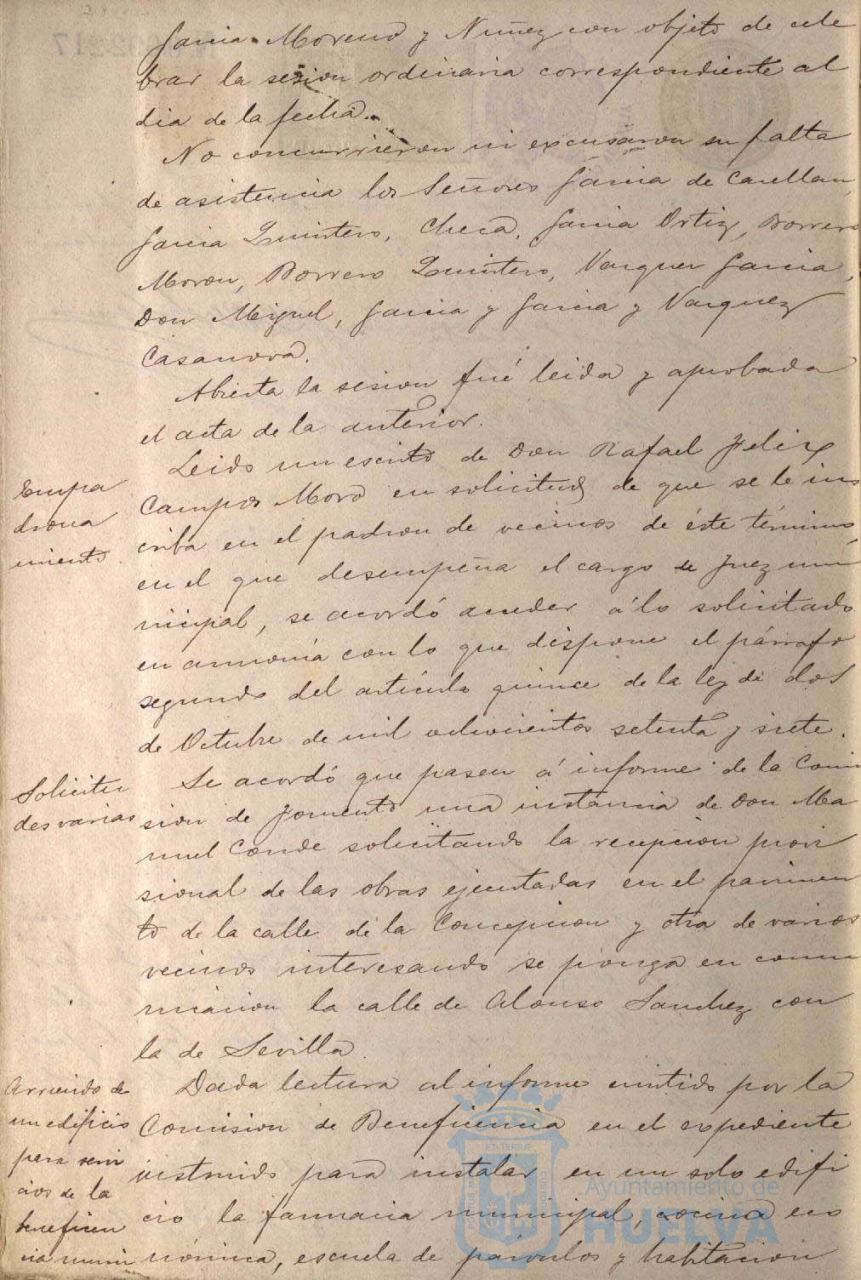 Garcia Moreno y Nuñez con objeto de cele
brar la sesion ordinaria correspondiente al
dia de la fecha.
No concurrieron ni excusaron su falta
de asistencia los Señores Garcia de Casellan,
Garcia Quintero, Checa, Garcia Ortiz, Borrero
Moron, Borrero Quintero, Vazquez Garcia,
Don Miguel, Garcia y Garcia y Vazquez
Casanova.
Abierta la sesion fué leida y aprobada
el acta de la anterior.
Empa
drona
miento
Leido un escrito de Don Rafael Felix
Campos Moro en solicitud de que se le ins
criba en el padron de vecinos de éste término,
en el que desempeña el cargo de Juez mu
nicipal, se acordó acceder á lo solicitado
en armonía con lo que dispone el párrafo
segundo del artículo quince de la ley de dos
de Octubre de mil ochocientos setenta y siete.
Solicitu
des varias
Se acordó que pasen á informe de la Comi
sion de Fomento una instancia de Don Ma
nuel Conde solicitando la recepcion provi
sional de las obras ejecutadas en el pavimen
to de la calle de la Concepcion y otra de varios
vecinos interesando se ponga en comu
nicacion la calle de Alonso Sanchez con
la de Sevilla.
Arriendo de
un edificio
para servi
cios de la
beneficen
cia muni
Dada lectura al informe emitido por la
Comision de Beneficencia en el expediente
instruido para instalar en un solo edifi
cio la farmacia municipal, cocina eco
nómica, escuela de párvulos y habitacion
Ayuntamiento de
HUELVA